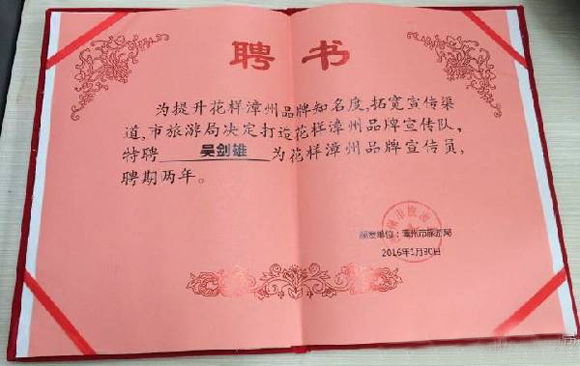 聘书
为提升花样漳州品牌知名度,拓宽宣传渠
道,市旅游局决定打造花样漳州品牌宣传队,
特聘 吴剑雄 为花样漳州品牌宣传员,
聘期两年。
颁发单位：漳州市旅游局
2016年1月30日